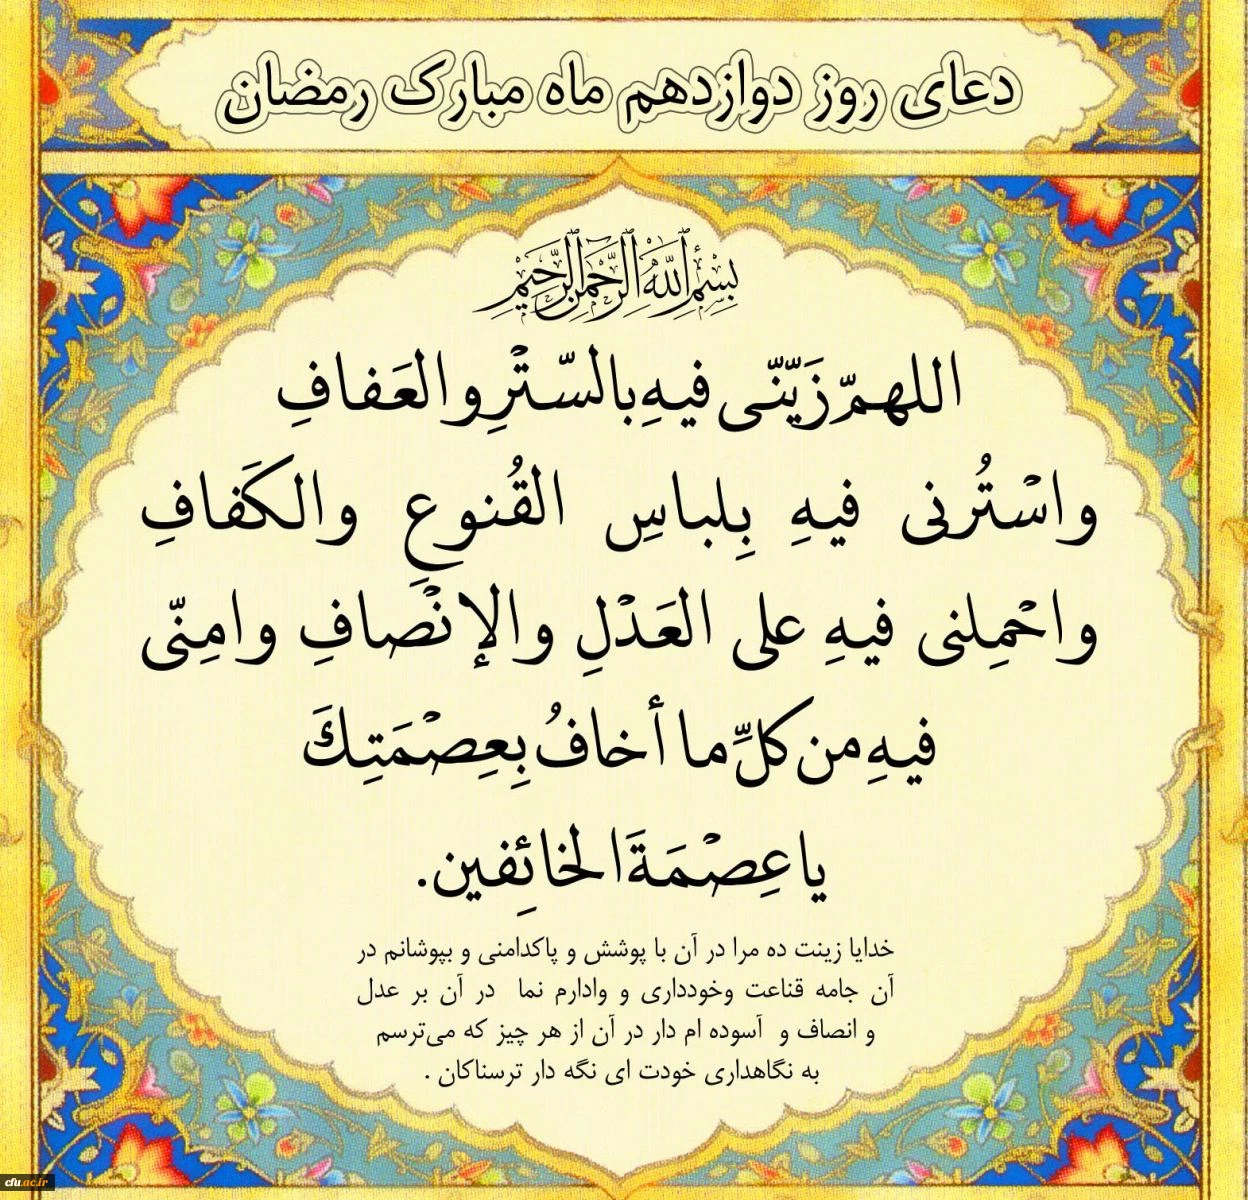 دعای روز دوازدهم ماه مبارک رمضان
بِسْمِ اللَّهِ الرَّحْمَنِ الرَّحِيمِ
اللهمّ زَیّنّی فیهِ بالسّتْرِ والعَفافِ
واسْتُرنی فیهِ بِلباسِ القُنوعِ والکَفافِ
واحْمِلنی فیهِ علی العَدْلِ والإنْصافِ وامِنّی
فیهِ من کلِّ ما أخافُ بِعِصْمَتِكَ
یا عِصْمَةَ الخائِفین.
خدایا زینت ده مرا در آن با پوشش و پاکدامنی و بپوشانم در
آن جامه قناعت وخودداری و وادارم نما در آن بر عدل
و انصاف و آسوده ام دار در آن از هر چیز که می‌ترسم
به نگاهداری خودت ای نگه دار ترسناکان .
cfu.ac.ir